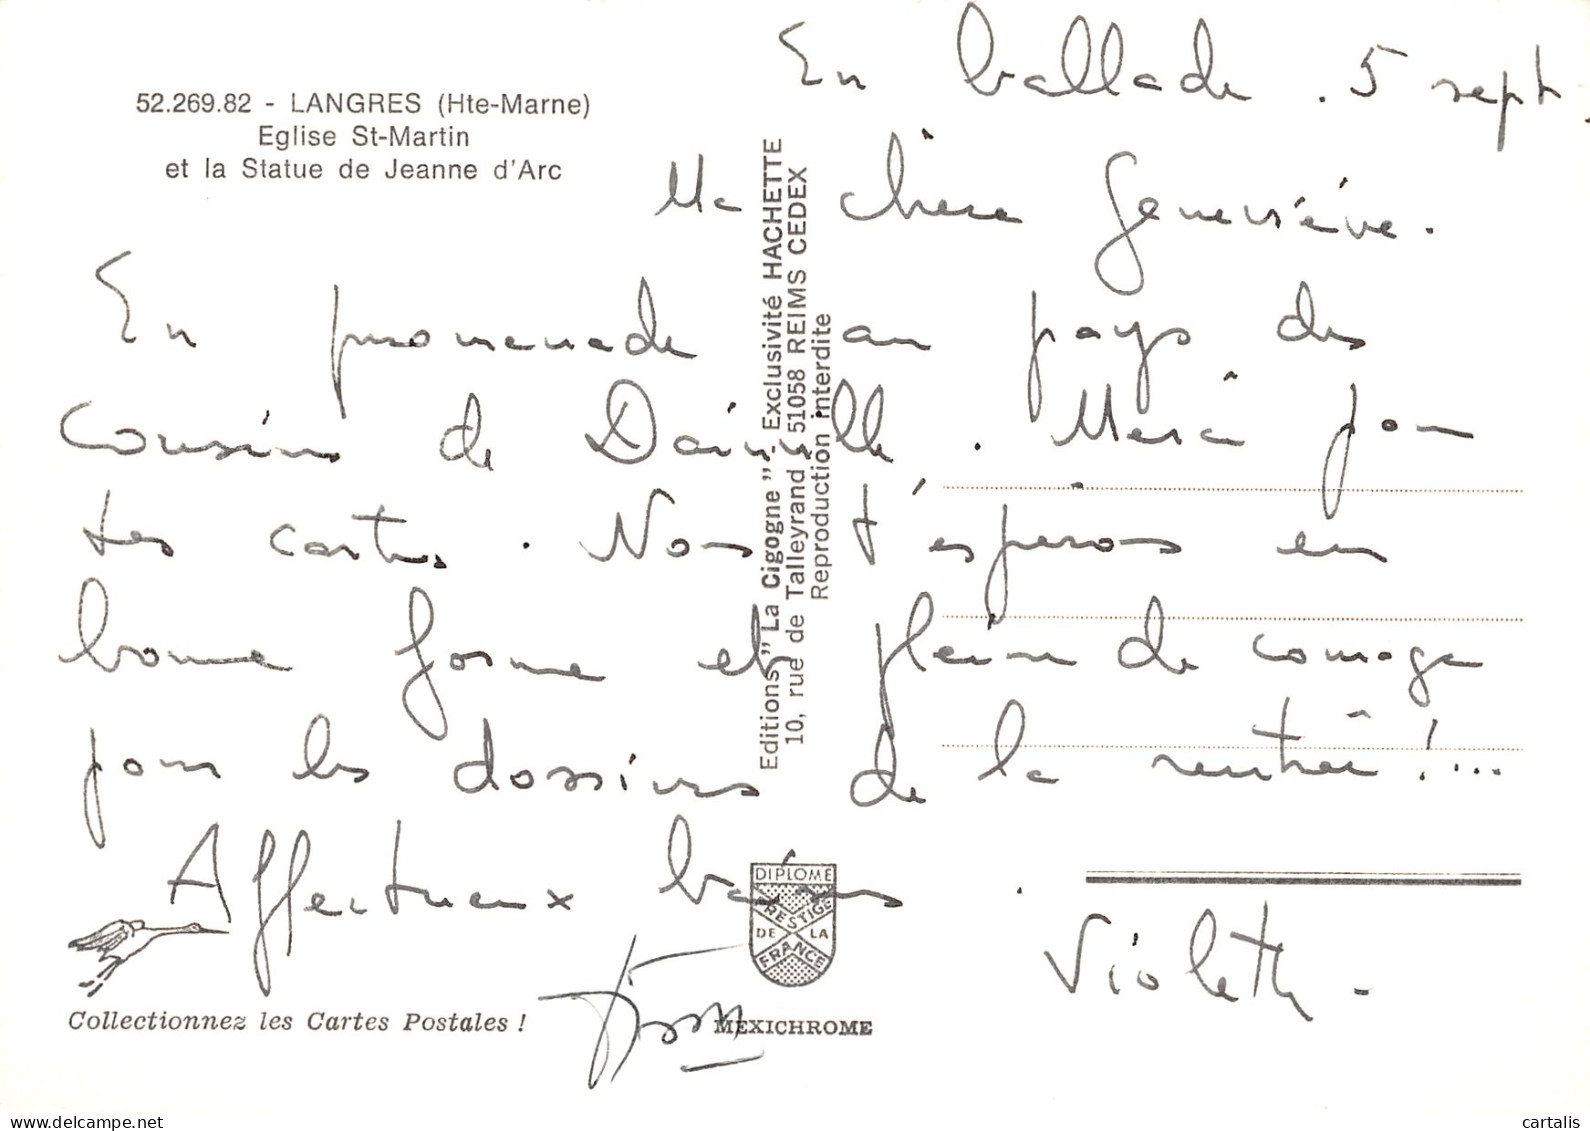 En ballade . 5 sept.
52.269.82 - LANGRES (Hte-Marne)
Eglise St-Martin
et la Statue de Jeanne d'Arc
Ma chère Geneviève.
En promenade au pays des
cousins de Dainville. Merci pour
tes cartes. Nous t'espérons en
bonne forme et pleine de courage
pour les dossiers de la rentrée !...
Affectueux baisers.
Violette -
Editions "La Cigogne" - Exclusivité HACHETTE
10, rue de Talleyrand 51058 REIMS CEDEX
Reproduction interdite
DIPLOME
PRESTIGE
DE LA
FRANCE
Collectionnez les Cartes Postales !
MEXICHROME
delcampe.net
cartalis